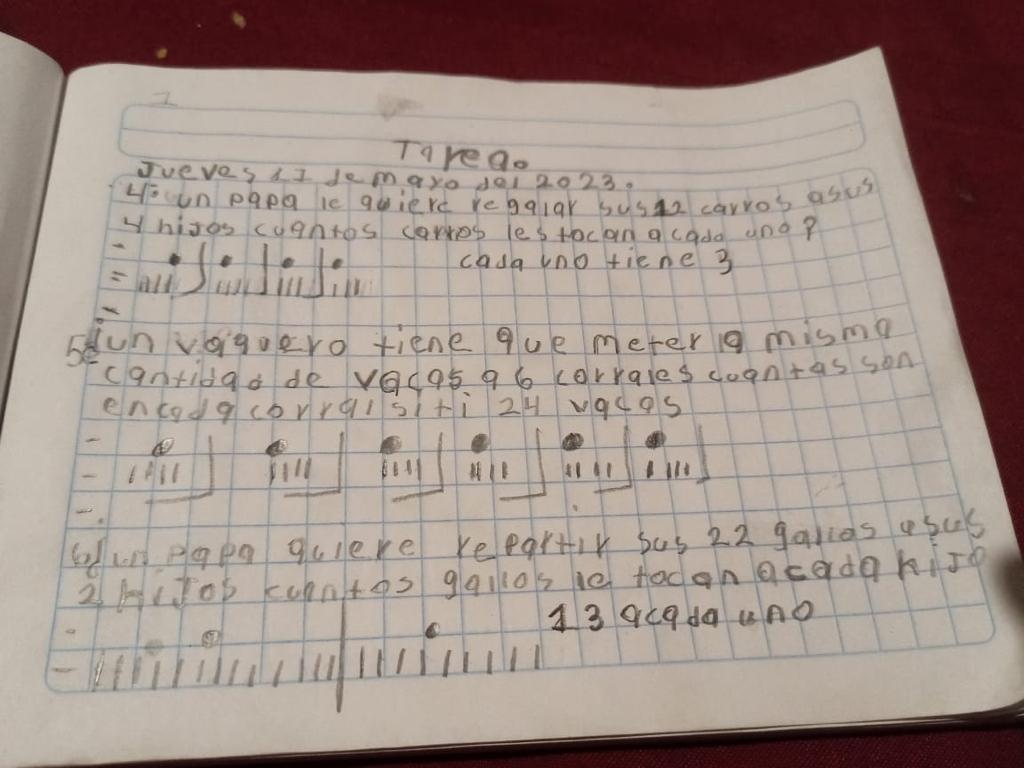 Tarea.
Jueves 11 de mayo del 2023.
4: un papa le quiere regalar sus 12 carros asus
4 hijos cuantos carros les tocan a cada uno?
cada uno tiene 3
5: un vaquero tiene que meter la misma
cantidad de vacas a 6 corrales cuantas son
encada corral si ti 24 vacas
6: un papa quiere repartir sus 22 gallos asus
2 hijos cuantos gallos le tocan acada hijo
13 acada uno